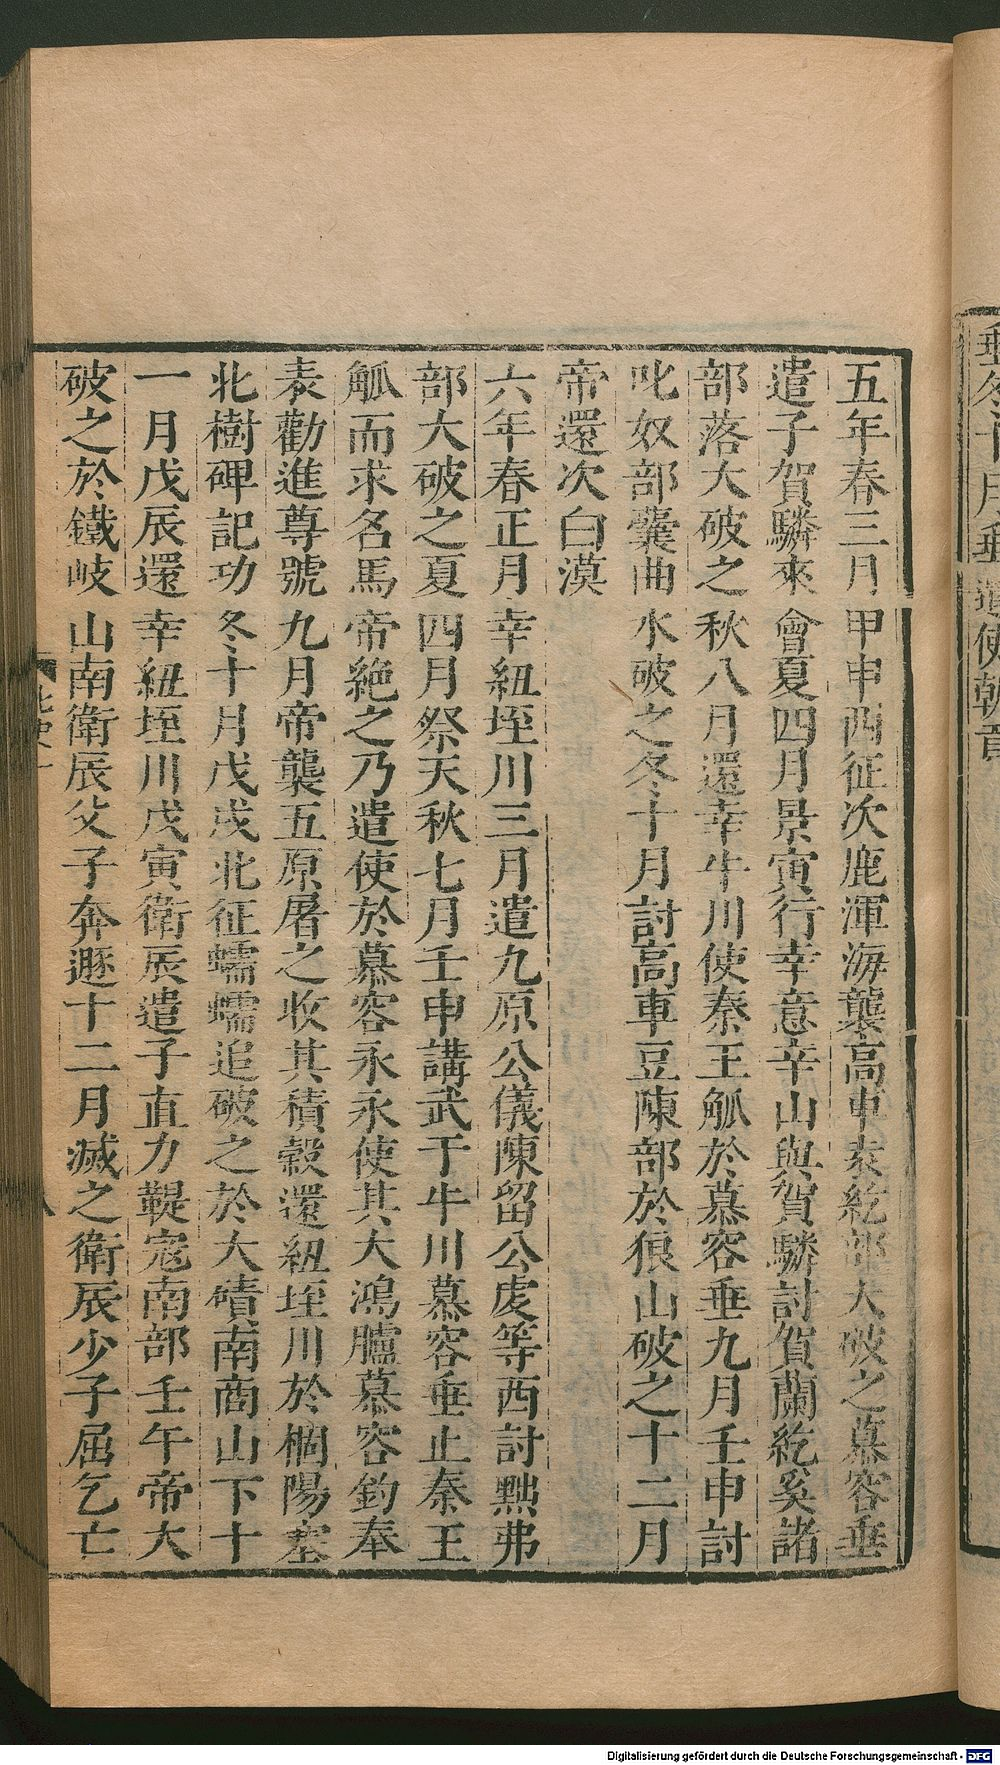 五年春三月甲申西征次鹿渾海襲高車袁紇部大破之慕容垂
遣子賀驎來會夏四月景寅行幸意辛山與賀驎討賀蘭紇奚諸
部落大破之秋八月還幸牛川使秦王觚於慕容垂九月壬申討
叱奴部囊曲水破之冬十月討高車豆陳部於狼山破之十二月
帝還次白漠
六年春正月幸紐垤川三月遣九原公儀陳留公虔等西討黜弗
部大破之夏四月祭天秋七月壬申講武于牛川慕容垂止秦王
觚而求名馬帝絶之乃遣使於慕容永永使其大鴻臚慕容鈞奉
表勸進尊號九月帝襲五原屠之收其積穀還紐垤川於棝陽塞
北樹碑記功冬十月戊戌北征蠕蠕追破之於大磧南商山下十
一月戊辰還幸紐垤川戊寅衛辰遣子直力鞮寇南部壬午帝大
破之於鐵岐山南衛辰父子奔遯十二月滅之衛辰少子屈乞亡
北史一
八
遣使朝貢
Digitalisierung gefördert durch die Deutsche Forschungsgemeinschaft - DFG